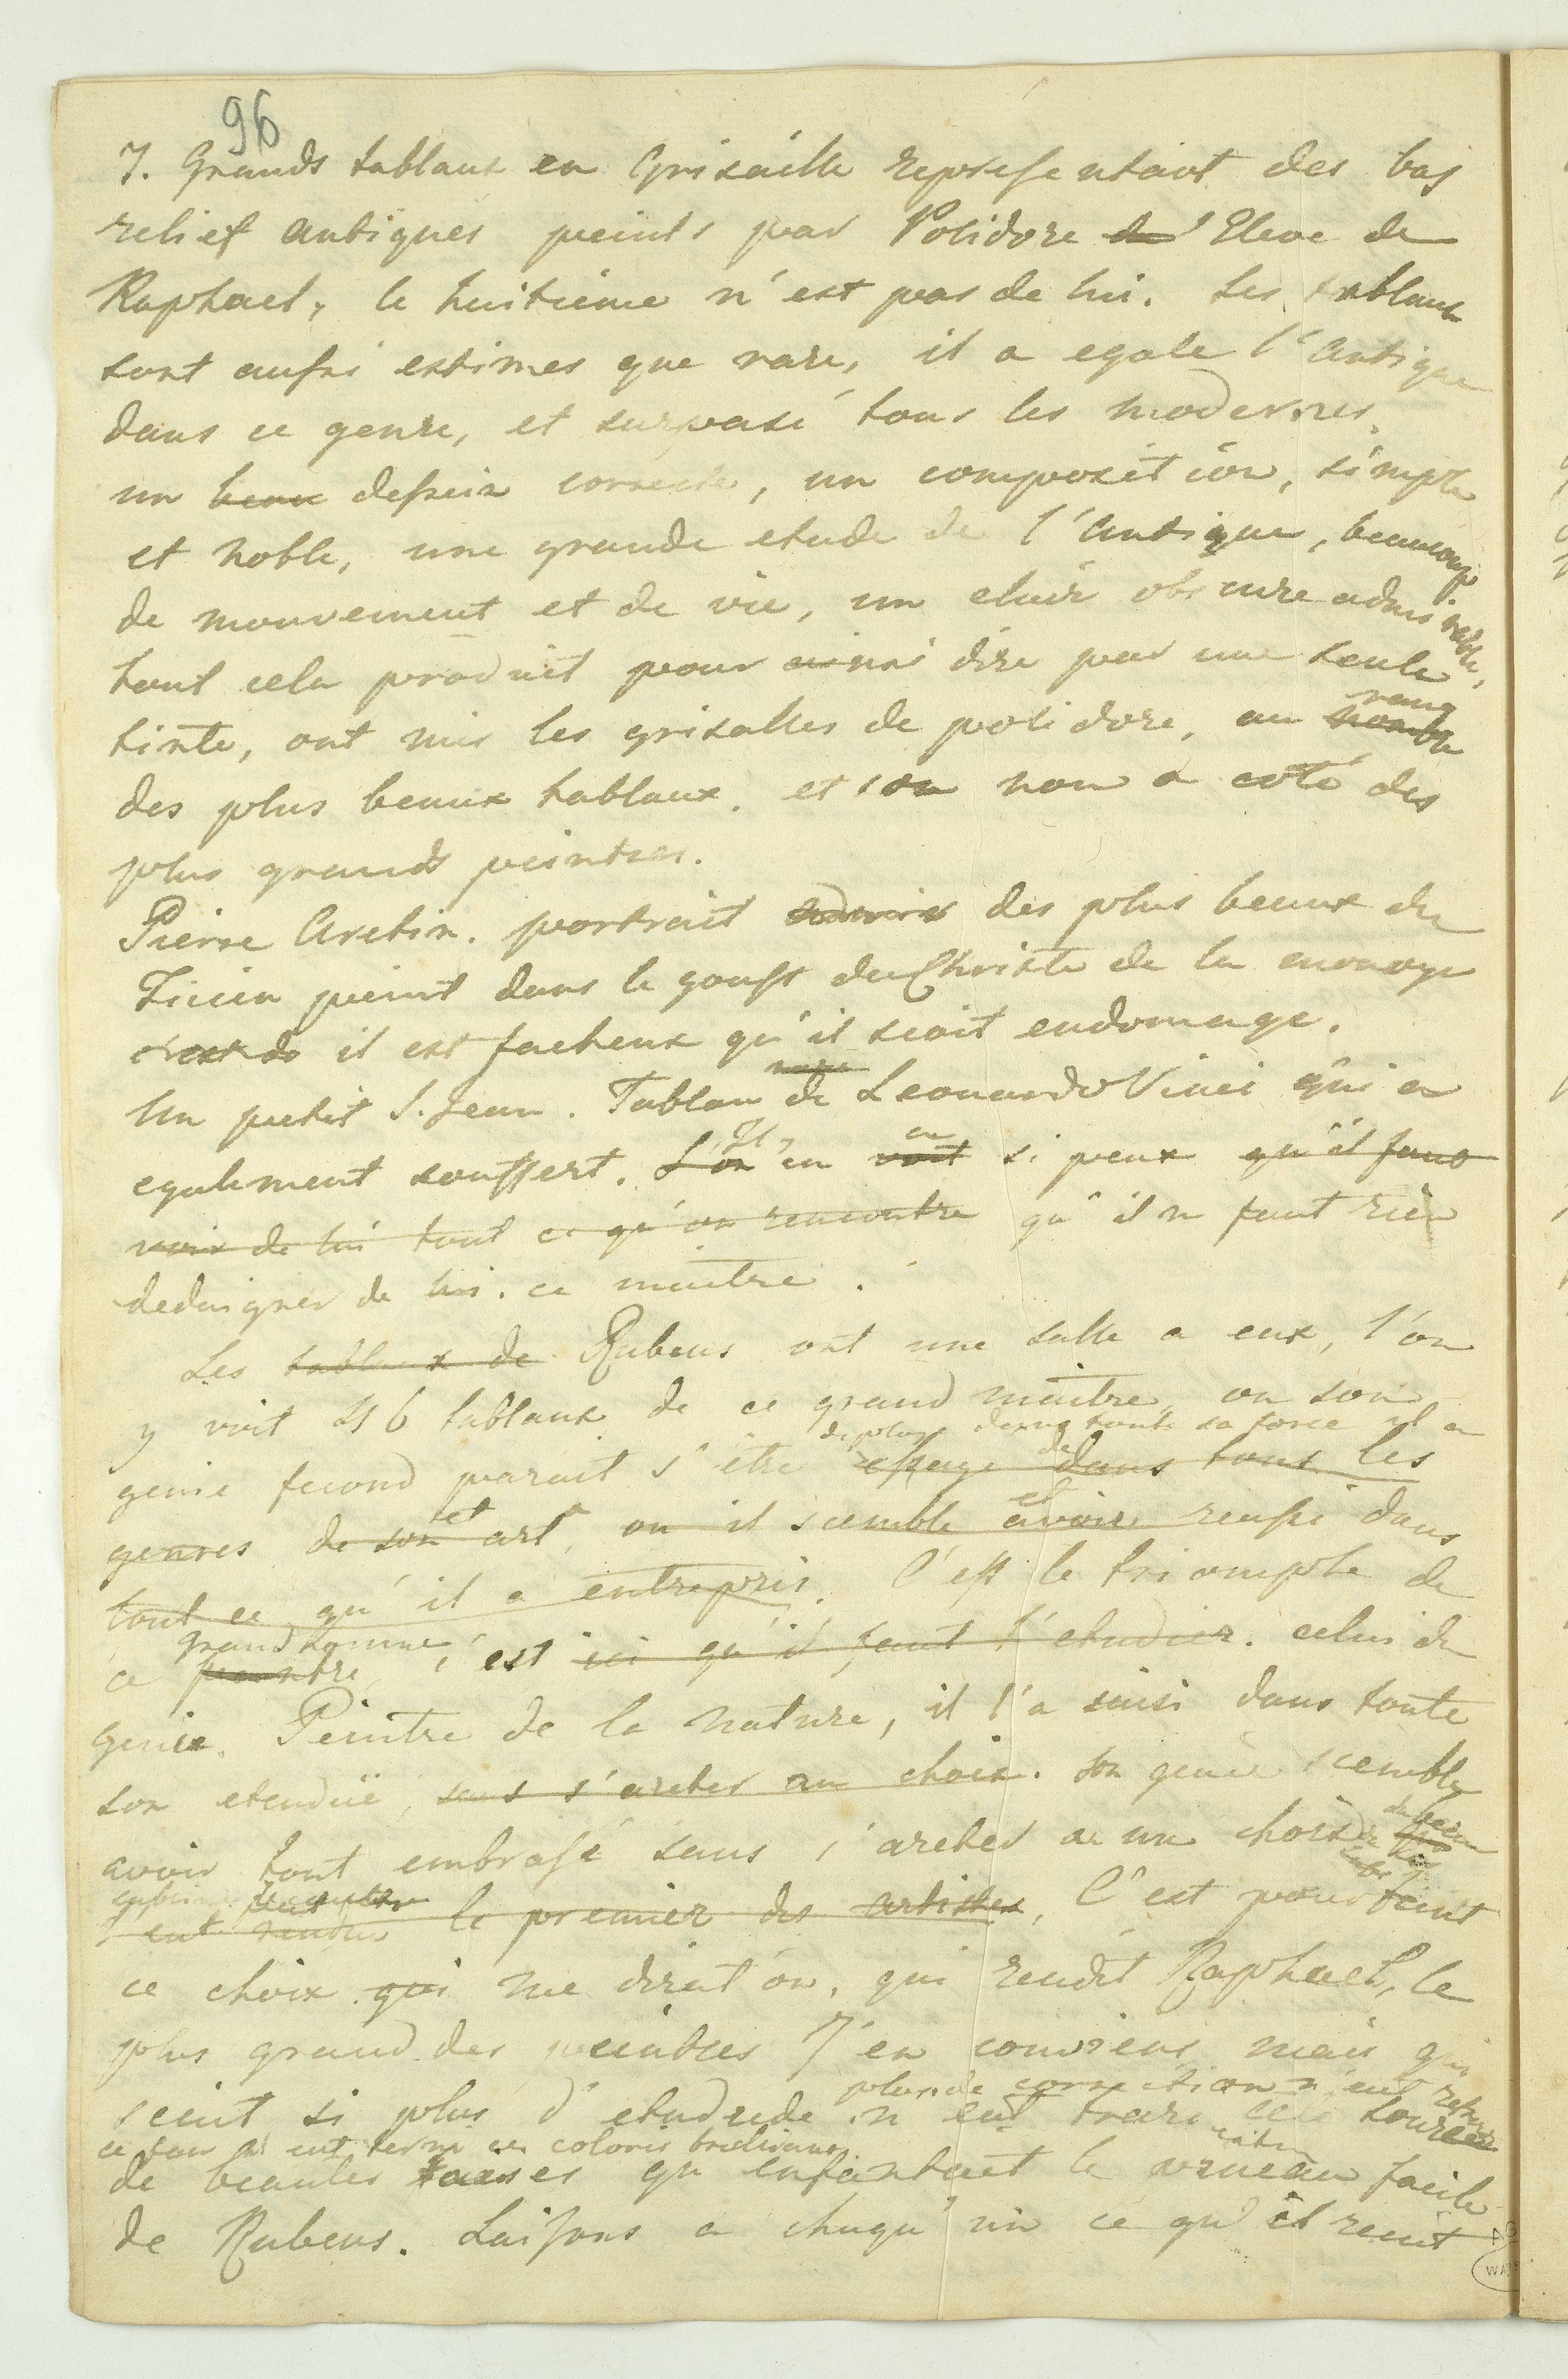 96
7. Grands tablaux en Grisaille representant des bas
relief antiques peints par Polidore de Eleve de
Raphael, le huitieme n'est pas de lui. Les tablaux
sont aussi estimes que rare, il a egale l'antique
dans ce genre, et surpasé tous les modernes.
un beau dessein correcte, un composition, simple
et noble, une grande etude de l'antique, beaucoup
de mouvement et de vie, un clair obscure admirable,
tout cela produit pour ainsi dire par une seule
rang
tinte, ont mis les grisalles de polidore, au nombre
des plus beaux tablaux. et son nom a coté des
plus grands peintres.
Pierre Aretin. portrait des plus beaux du
Ticien peint dans le goust du Christe de la monoye
il est facheux qu'il scoit endomage.
Un petit S. Jean. Tablau de Leonardo Vinci qui a
egalement souffert. L'on en voit si peux qu'il faut
voir de lui tout ce qu'on rencontre qu'il ne faut rien
dedaigner de lui. ce maitre.
Les tablaux de Rubens ont une salle a eux, l'on
y voit 46 tablaux de ce grand maitre, ou son
deploye dans toute sa force il a
genie fecond parait s'être essaye dans tous les
et
genres de son art, ou il scemble avoir reussi dans
tout ce qu'il a entrepris. C'est le triomphe de
grand homme
ce peintre, c'est ici qu'il faut l'etudier. celui du
genie. Peintre de la nature, il l'a saisi dans toute
son etenduë, sans s'areter au choix. Son genie scemble
avoir tout embrasé sans s'areter a un choix
le premier des artistes, C'est pourtant
ce choix qui me dirat on, qui rendit Raphael, le
plus grand des peintres J'en conviens mais qui
plus de correction n'eut
scait si plus d'etude n'eut tari cette source
ce feu et eut terni ces coloris
de beautés qu'enfantait le pinceau facile
de Rubens. Laissons a chaqu'un ce qu'il recut